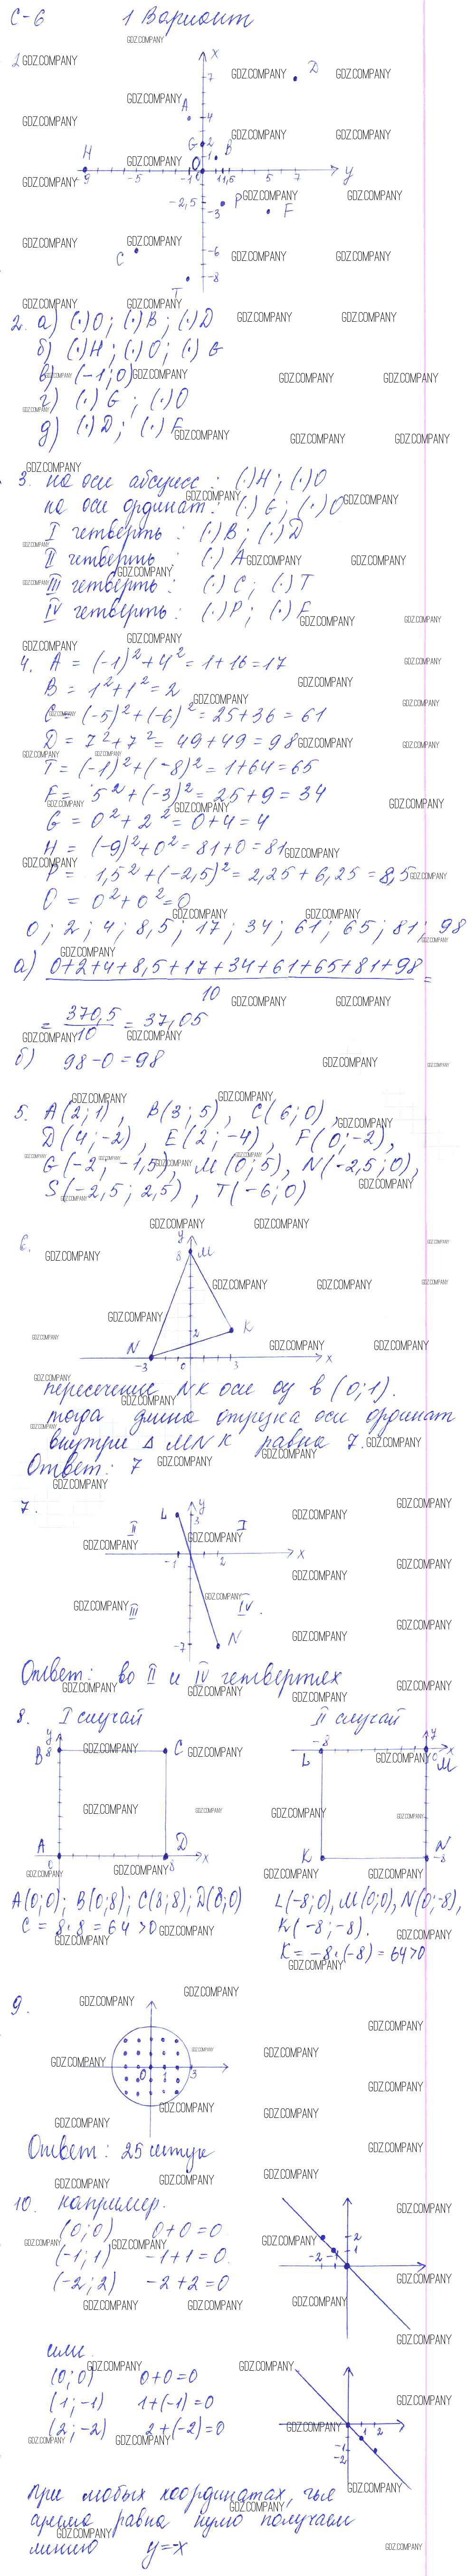 С-6 1 Вариант
1
x
7 D
A 4
G 2
1 B
H O
-9 -5 -1 0 1 1,5 5 7 y
-2,5 P
-3 F
C -6
T -8
2. а) (·)O; (·)B; (·)D
б) (·)H; (·)O; (·)G
в) (-1; 0)
г) (·)G; (·)O
д) (·)D; (·)F
3. на оси абсцисс: (·)H; (·)O
на оси ординат: (·)G; (·)O
I четверть: (·)B; (·)D
II четверть: (·)A
III четверть: (·)C; (·)T
IV четверть: (·)P; (·)F
4. A = (-1)² + 4² = 1+16 = 17
B = 1² + 1² = 2
C = (-5)² + (-6)² = 25+36 = 61
D = 7² + 7² = 49+49 = 98
T = (-1)² + (-8)² = 1+64 = 65
F = 5² + (-3)² = 25+9 = 34
G = 0² + 2² = 0+4 = 4
H = (-9)² + 0² = 81+0 = 81
P = 1,5² + (-2,5)² = 2,25 + 6,25 = 8,5
O = 0² + 0² = 0
0; 2; 4; 8,5; 17; 34; 61; 65; 81; 98
а) 0+2+4+8,5+17+34+61+65+81+98 =
10
= 370,5/10 = 37,05
б) 98-0 = 98
5. A(2; 1), B(3; 5), C(6; 0),
D(4; -2), E(2; -4), F(0; -2),
G(-2; -1,5), M(0; 5), N(-2,5; 0),
S(-2,5; 2,5), T(-6; 0)
6.
y
8 M
2 K
N
-3 0 3 x
пересечение NK оси oy в (0; 1).
тогда длина отрезка оси ординат
внутри Δ MNK равна 7.
Ответ: 7
7.
L y
3
II I
-1 2 x
III IV.
-7 N
Ответ: во II и IV четвертях
8. I случай II случай
y
B 8 C
A D
0 8 x
-8 y
L 0 x
M
K N
-8
A(0; 0); B(0; 8); C(8; 8); D(8; 0) L(-8; 0), M(0; 0), N(0; -8),
C = 8·8 = 64 > 0 K(-8; -8).
K = -8·(-8) = 64 > 0
9.
0 1 3
Ответ: 25 штук
10. например.
(0; 0) 0+0=0
(-1; 1) -1+1=0.
(-2; 2) -2+2=0
2
1
-2 -1
или
(0; 0) 0+0=0
(1; -1) 1+(-1)=0
(2; -2) 2+(-2)=0
1 2
-1
-2
при любых координатах, чья
сумма равна нулю получаем
линию y=-x
GDZ.COMPANY